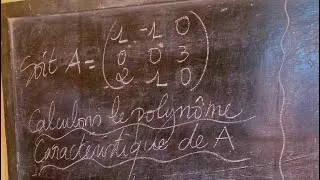 Soit A = (1 -1 0
0 0 3
2 1 0)
Calculons le polynôme
Caractéristique de A